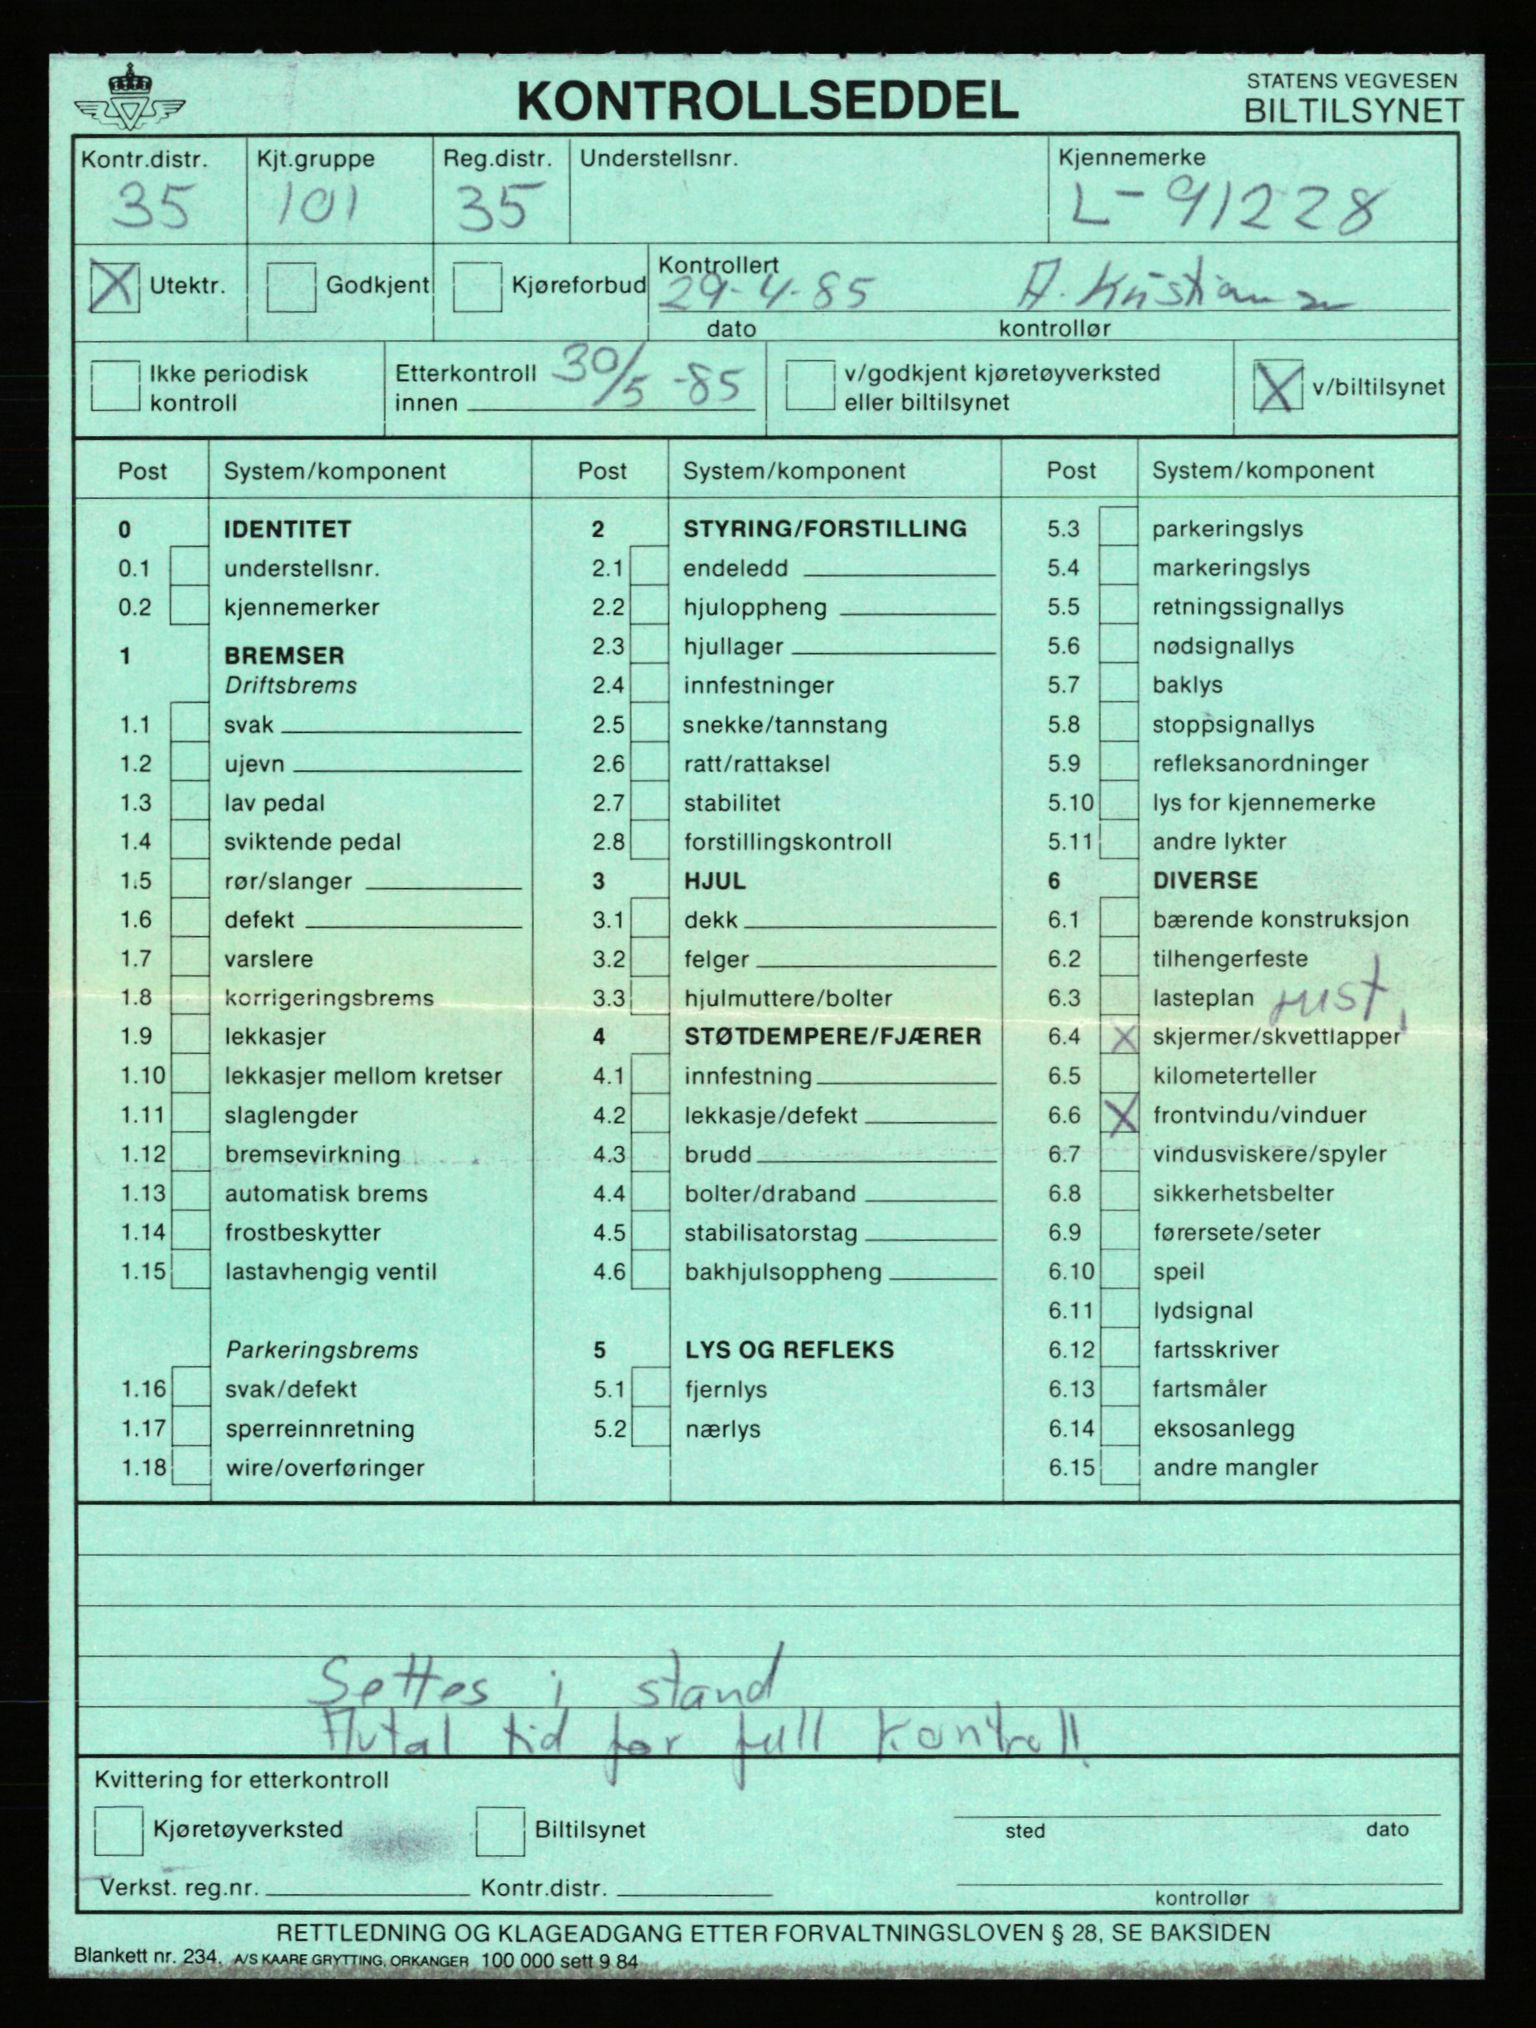 KONTROLLSEDDEL
STATENS VEGVESEN
BILTILSYNET
Kontr.distr. Kjt.gruppe Reg.distr. Understellsnr. Kjennemerke
35 101 35 L-91228
X Utektr. Godkjent Kjøreforbud Kontrollert
29-4-85 A. Kristiansen
dato kontrollør
Ikke periodisk kontroll
Etterkontroll innen 30/5-85
v/godkjent kjøretøyverksted eller biltilsynet
X v/biltilsynet
Post System/komponent Post System/komponent Post System/komponent
0 IDENTITET
0.1 understellsnr.
0.2 kjennemerker
1 BREMSER
Driftsbrems
1.1 svak
1.2 ujevn
1.3 lav pedal
1.4 sviktende pedal
1.5 rør/slanger
1.6 defekt
1.7 varslere
1.8 korrigeringsbrems
1.9 lekkasjer
1.10 lekkasjer mellom kretser
1.11 slaglengder
1.12 bremsevirkning
1.13 automatisk brems
1.14 frostbeskytter
1.15 lastavhengig ventil
Parkeringsbrems
1.16 svak/defekt
1.17 sperreinnretning
1.18 wire/overføringer
2 STYRING/FORSTILLING
2.1 endeledd
2.2 hjuloppheng
2.3 hjullager
2.4 innfestninger
2.5 snekke/tannstang
2.6 ratt/rattaksel
2.7 stabilitet
2.8 forstillingskontroll
3 HJUL
3.1 dekk
3.2 felger
3.3 hjulmuttere/bolter
4 STØTDEMPERE/FJÆRER
4.1 innfestning
4.2 lekkasje/defekt
4.3 brudd
4.4 bolter/draband
4.5 stabilisatorstag
4.6 bakhjulsoppheng
5 LYS OG REFLEKS
5.1 fjernlys
5.2 nærlys
5.3 parkeringslys
5.4 markeringslys
5.5 retningssignallys
5.6 nødsignallys
5.7 baklys
5.8 stoppsignallys
5.9 refleksanordninger
5.10 lys for kjennemerke
5.11 andre lykter
6 DIVERSE
6.1 bærende konstruksjon
6.2 tilhengerfeste
6.3 lasteplan rust,
6.4 X skjermer/skvettlapper
6.5 kilometerteller
6.6 X frontvindu/vinduer
6.7 vindusviskere/spyler
6.8 sikkerhetsbelter
6.9 førersete/seter
6.10 speil
6.11 lydsignal
6.12 fartsskriver
6.13 fartsmåler
6.14 eksosanlegg
6.15 andre mangler
Settes i stand
Avtal tid for full kontroll!
Kvittering for etterkontroll
Kjøretøyverksted Biltilsynet
sted dato
Verkst. reg.nr. Kontr.distr.
kontrollør
RETTLEDNING OG KLAGEADGANG ETTER FORVALTNINGSLOVEN § 28, SE BAKSIDEN
Blankett nr. 234. A/S KAARE GRYTTING, ORKANGER 100 000 sett 9 84